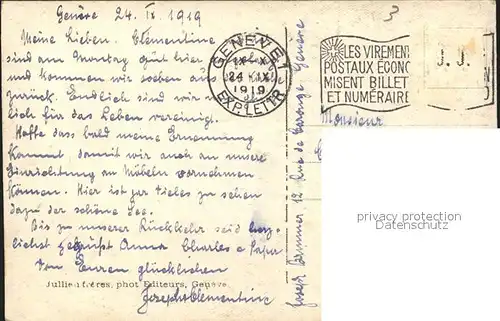 Genève 24. IX. 1919
Meine Lieben. Clementine
sind am Montag gut hier
und kommen wir soeben aus
zurück. Endlich sind wir
lich für das Leben vereinigt.
Hoffe dass bald meine Ernennung
kommt damit wir auch an unsere
Einrichtung an Möbeln vornehmen
können. Hier ist gar vieles zu sehen
dazu der schöne See.
Bis zu unserer Rückkehr seid herz-
lichst gegrüßt Anna Charles & Papa
Von Euren glücklichen
Jullien frères, phot Editeurs, Genève
Joseph & Clementine
GENEVE 1
IX-X
24 IX
1919
EXP. LETTR
LES VIREMEN
POSTAUX ECONO
MISENT BILLET
ET NUMÉRAIRE
J. J.
3
Monsieur
privacy protection
Datenschutz
Joseph 12 Rue de Genève